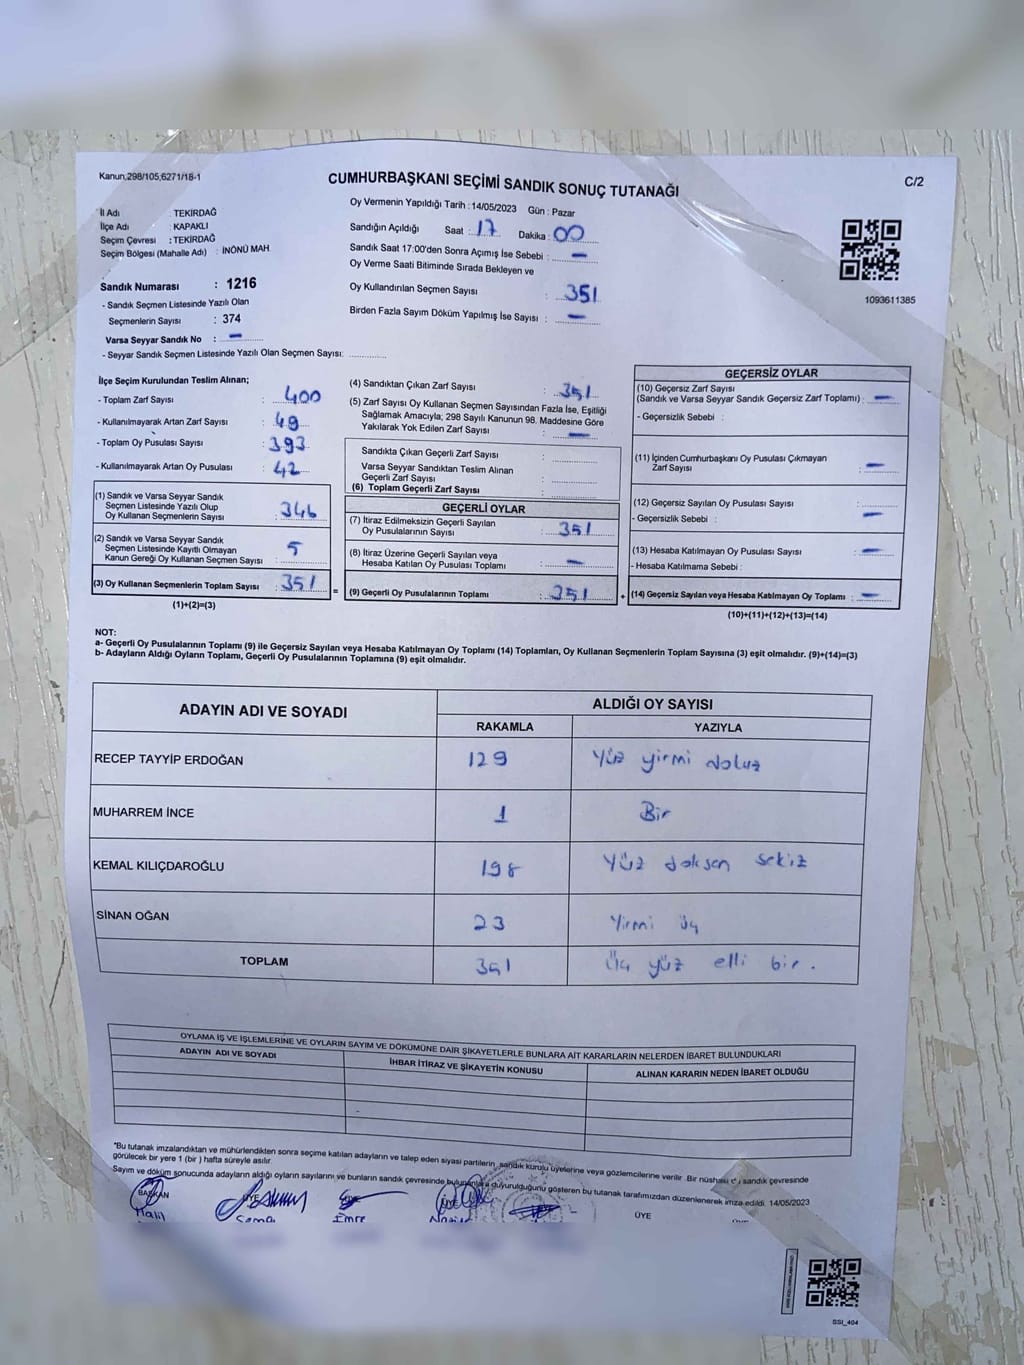 Kanun,298/105,6271/18-1
CUMHURBAŞKANI SEÇİMİ SANDIK SONUÇ TUTANAĞI
C/2
İl Adı : TEKİRDAĞ
İlçe Adı : KAPAKLI
Seçim Çevresi : TEKİRDAĞ
Seçim Bölgesi (Mahalle Adı) : İNÖNÜ MAH.
Sandık Numarası : 1216
- Sandık Seçmen Listesinde Yazılı Olan
Seçmenlerin Sayısı : 374
Varsa Seyyar Sandık No : –
- Seyyar Sandık Seçmen Listesinde Yazılı Olan Seçmen Sayısı:
Oy Vermenin Yapıldığı Tarih : 14/05/2023 Gün : Pazar
Sandığın Açıldığı Saat : 17 Dakika : 00
Sandık Saat 17:00'den Sonra Açımış İse Sebebi : –
Oy Verme Saati Bitiminde Sırada Bekleyen ve
Oy Kullandırılan Seçmen Sayısı : 351
Birden Fazla Sayım Döküm Yapılmış İse Sayısı : –
1093611385
İlçe Seçim Kurulundan Teslim Alınan;
- Toplam Zarf Sayısı : 400
- Kullanılmayarak Artan Zarf Sayısı : 49
- Toplam Oy Pusulası Sayısı : 393
- Kullanılmayarak Artan Oy Pusulası : 42
(1) Sandık ve Varsa Seyyar Sandık
Seçmen Listesinde Yazılı Olup
Oy Kullanan Seçmenlerin Sayısı : 346
(2) Sandık ve Varsa Seyyar Sandık
Seçmen Listesinde Kayıtlı Olmayan
Kanun Gereği Oy Kullanan Seçmen Sayısı : 5
(3) Oy Kullanan Seçmenlerin Toplam Sayısı : 351
(1)+(2)=(3)
(4) Sandıktan Çıkan Zarf Sayısı : 351
(5) Zarf Sayısı Oy Kullanan Seçmen Sayısından Fazla İse, Eşitliği
Sağlamak Amacıyla; 298 Sayılı Kanunun 98. Maddesine Göre
Yakılarak Yok Edilen Zarf Sayısı : –
Sandıkta Çıkan Geçerli Zarf Sayısı :
Varsa Seyyar Sandıktan Teslim Alınan
Geçerli Zarf Sayısı :
(6) Toplam Geçerli Zarf Sayısı :
GEÇERLİ OYLAR
(7) İtiraz Edilmeksizin Geçerli Sayılan
Oy Pusulalarının Sayısı : 351
(8) İtiraz Üzerine Geçerli Sayılan veya
Hesaba Katılan Oy Pusulası Toplamı : –
= (9) Geçerli Oy Pusulalarının Toplamı : 351
GEÇERSİZ OYLAR
(10) Geçersiz Zarf Sayısı
(Sandık ve Varsa Seyyar Sandık Geçersiz Zarf Toplamı) : –
- Geçersizlik Sebebi :
(11) İçinden Cumhurbaşkanı Oy Pusulası Çıkmayan
Zarf Sayısı : –
(12) Geçersiz Sayılan Oy Pusulası Sayısı :
- Geçersizlik Sebebi : –
(13) Hesaba Katılmayan Oy Pusulası Sayısı : –
- Hesaba Katılmama Sebebi :
+ (14) Geçersiz Sayılan veya Hesaba Katılmayan Oy Toplamı : –
(10)+(11)+(12)+(13)=(14)
NOT:
a- Geçerli Oy Pusulalarının Toplamı (9) ile Geçersiz Sayılan veya Hesaba Katılmayan Oy Toplamı (14) Toplamları, Oy Kullanan Seçmenlerin Toplam Sayısına (3) eşit olmalıdır. (9)+(14)=(3)
b- Adayların Aldığı Oyların Toplamı, Geçerli Oy Pusulalarının Toplamına (9) eşit olmalıdır.
ADAYIN ADI VE SOYADI
ALDIĞI OY SAYISI
RAKAMLA YAZIYLA
RECEP TAYYİP ERDOĞAN 129 Yüz yirmi dokuz
MUHARREM İNCE 1 Bir
KEMAL KILIÇDAROĞLU 198 Yüz doksen sekiz
SİNAN OĞAN 23 Yirmi üç
TOPLAM 351 Üç yüz elli bir.
OYLAMA İŞ VE İŞLEMLERİNE VE OYLARIN SAYIM VE DÖKÜMÜNE DAİR ŞİKAYETLERLE BUNLARA AİT KARARLARIN NELERDEN İBARET BULUNDUKLARI
ADAYIN ADI VE SOYADI İHBAR İTİRAZ VE ŞİKAYETİN KONUSU ALINAN KARARIN NEDEN İBARET OLDUĞU
*Bu tutanak imzalandıktan ve mühürlendikten sonra seçime katılan adayların ve talep eden siyasi partilerin, sandık kurulu üyelerine veya gözlemcilerine verilir. Bir nüshası da sandık çevresinde
görülecek bir yere 1 (bir) hafta süreyle asılır.
Sayım ve döküm sonucunda adayların aldığı oyların sayılarını ve bunların sandık çevresinde bulunanlara duyurulduğunu gösteren bu tutanak tarafımızdan düzenlenerek imza edildi. 14/05/2023
BAŞKAN ÜYE ÜYE
Halil Sema Emre
SSI_404